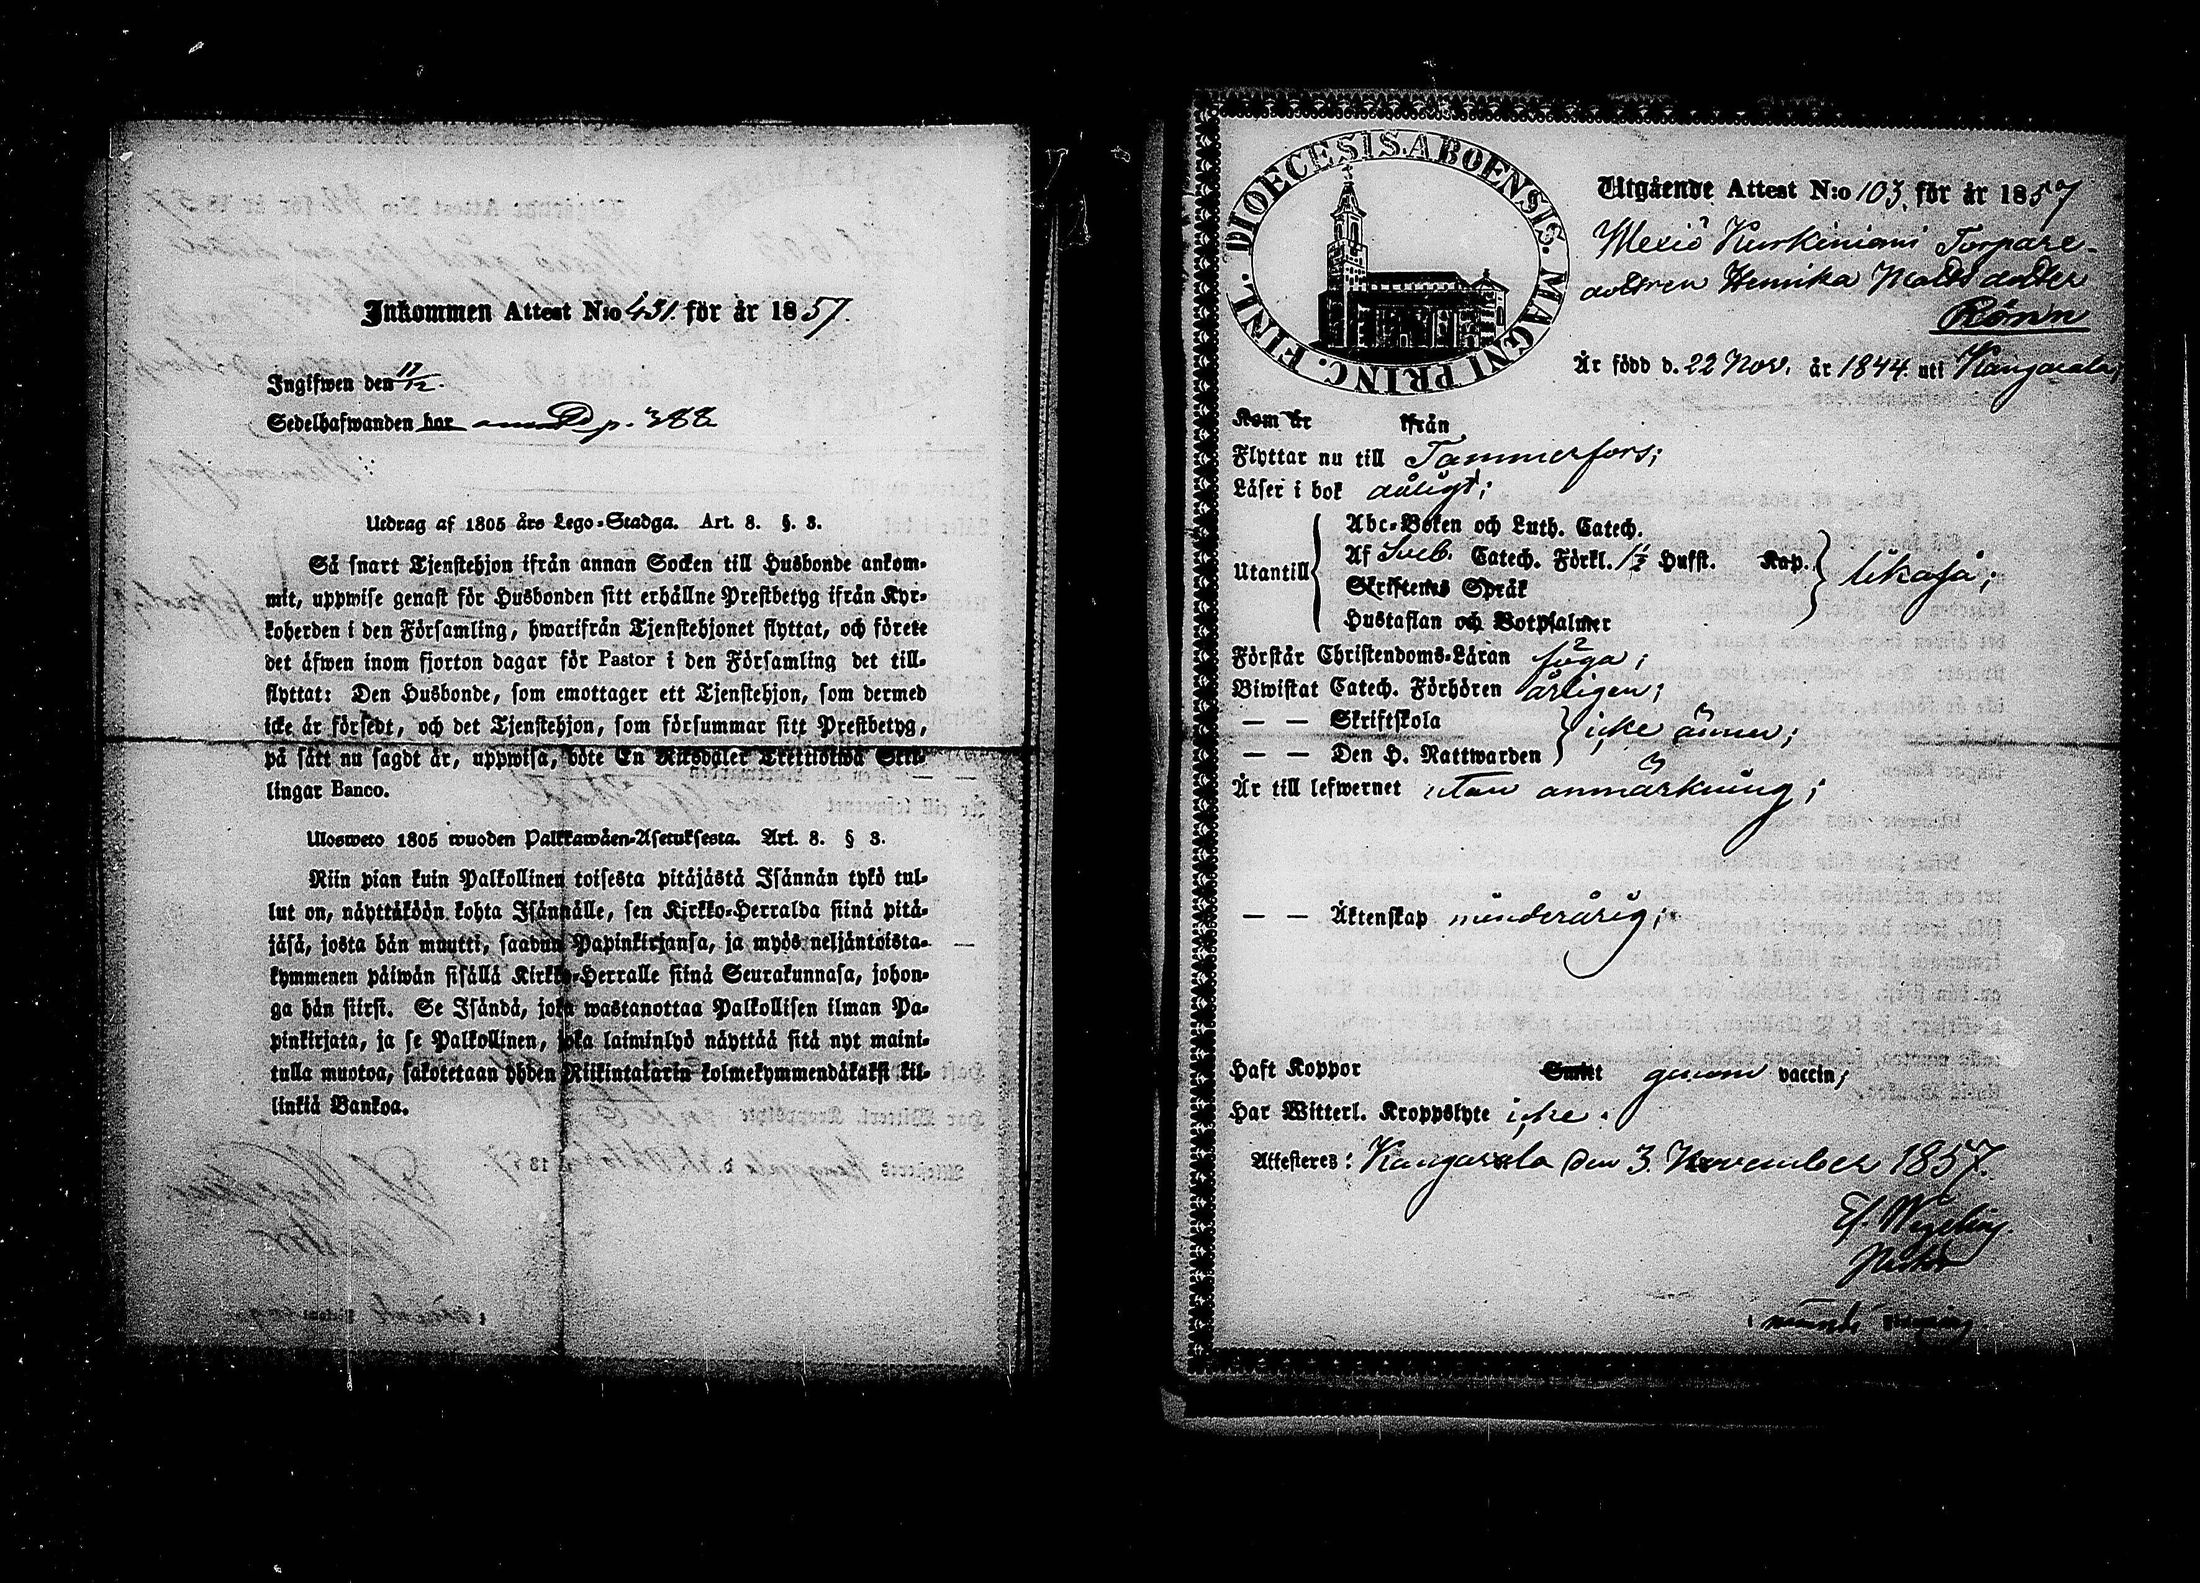 Inkommen Attest N:o 431. för år 1857.
Ingifwen den 17/12.
Sedelhafwanden har p. 388
Utdrag af 1805 års Lego-Stadga. Art. 8. §. 3.
Så snart Tjenstehjon ifrån annan Socken till Husbonde ankom-
mit, uppwise genast för Husbonden sitt erhållne Prestbetyg ifrån Kyr-
koherden i den Församling, hwarifrån Tjenstehjonet flyttat, och förete
det äfwen inom fjorton dagar för Pastor i den Församling det till-
flyttat: Den Husbonde, som emottager ett Tjenstehjon, som dermed
icke är försedt, och det Tjenstehjon, som försummar sitt Prestbetyg,
på sätt nu sagdt är, uppwisa, böte En Riksdaler Trettiotwå Skil-
lingar Banco.
Ulosweto 1805 wuoden Palkkawäen-Asetuksesta. Art. 8. § 3.
Niin pian kuin Palkollinen toisesta pitäjästä Isännän tykö tul-
lut on, näyttäköön kohta Isännälle, sen Kirkko-Herralda siinä pitä-
jäsä, josta hän muutti, saadun Papinkirjansa, ja myös neljäntoista-
kymmenen päiwän sisällä Kirkko-Herralle siinä Seurakunnasa, johon-
ga hän siirsi. Se Isändä, joka wastanottaa Palkollisen ilman Pa-
pinkirjata, ja se Palkollinen, joka laiminlyö näyttää sitä nyt maini-
tulla muotoa, sakotetaan yhden Riikintalarin kolmekymmendäkaksi kil-
linkiä Bankoa.
FINL. DIOECESIS. ABOENSIS. MAGNI PRINC.
Utgående Attest N:o 103. för år 1857
Torpare-
dottren Henrika Matts dotter
Är född d. 22 Nov. år 1844. uti Kangasala,
Kom år ifrån
Flyttar nu till Tammerfors;
Läser i bok dåligt;
Utantill
Abc-Boken och Luth. Catech.
Af Sveb. Catech. Förkl. 1½ Hufst. Kap.
Skriftenes Språk
Hustaflan och Botpsalmer
likaså;
Förstår Christendoms-Läran föga;
Biwistat Catech. Förhören årligen;
— — Skriftskola
— — Den H. Nattwarden
icke ännu;
Är till lefwernet utan anmärkning;
— — Äktenskap minderårig;
Haft Koppor genom vaccin;
Har Witterl. Kroppslyte icke.
Attesteres: Kangasala den 3. November 1857.